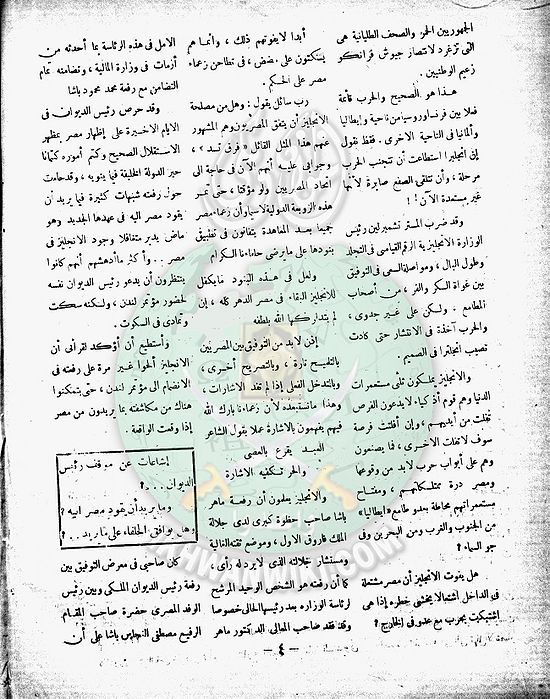 الجمهوريين الحمر والصحف الطليانية هى
التى تزغرد لانتصار جيوش فرانكو
زعيم الوطنيين .
هذا هو الصحيح والحرب قائمة
فعلا بين فرنسا وروسيا من ناحية وإيطاليا
وألمانيا فى الناحية الاخرى . فقط نقول
إن انجلترا استطاعت أن تتجنب الحرب
مرحلة ، وأن تتلقى الصفع صابرة لأنها
غير مستعدة الآن ! !
وقد ضرب المستر تشمبرلين رئيس
الوزارة الانجليزية الرقم القياسى فى التجلد
وطول البال ، ومواصلة السعى فى التوفيق
بين غواة السكر والفر ، من أصحاب
المطامع . ولسكن على غير جدوى ،
والحرب آخذة فى الانتشار حتى كادت
تصيب انجلترا فى الصميم .
والانجليز يملكون ثلثى مستعمرات
الدنيا وهم قوم أذكياء لا يدعون الفرص
تفلت من أيديهم ، وإن أفلتت فرصة
سوف لا تفلت الاخرى ، فما يصنعون
وهم على أبواب حرب لابد من وقوعها
ومصر درة ممتلسكاتهم ، ومفتاح
مستعمراتهم محاطة بعدو طامع « ايطاليا »
من الجنوب والغرب ومن البحرين وفى
جو السماء ؟
هل يفوت الانجليز أن مصر مشتملة
فى الداخل اشتعالا يخشى خطره إذا هى
إشتبكت بحرب مع عدو فى الخارج ؟
أبدا لا يفوتهم ذلك ، وانما هم
يسكتون على مضض ، فى تطاحن زعماء
مصر على الحكم .
رب سائل يقول : وهل من مصلحة
الانجليز أن يتفق المصريون وهم المشهور
عنهم هذا المثل القائل « فرق تسد » ،
وجوابى عليه أنهم الآن فى حاجة الى
اتحاد المصريين ولو مؤقتا ، حتى تمر
هذه الزوبعة الدولية لاسيما وأن زعماء مصر
جميعا بعد المعاهدة يتفانون فى تطبيق
بنودها على ما يرضى حلفاءنا السكرام
ولعل فى هذه البنود ما يكفل
للانجليز البقاء فى مصر الدهر كله ، إن
لم يتداركها الله بلطفه
إذن لابد من التوفيق بين المصريين
بالتلميح تارة ، وبالتصريح أخرى ،
وبالتدخل الفعلى إذا لم تفد الاشارات ،
وهذا ما نستبعده لأن زعماءنا بارك الله
فيهم يفهمون بالاشارة عملا بقول الشاعر
العبد يقرع بالعصى
والحر تكفيه الاشارة
والانجليز يعلمون أن رفعة ماهر
باشا صاحب حظوة كبرى لدى جلالة
الملك فاروق الاول ، وموضع ثقته الغالية
ومستشار جلالته الذى لا يرد له رأى ،
كما أن رفعته هو الشخص الوحيد المرشح
لرئاسة الوزاره بعد رئيسها الحالى خصوصا
وقد فقد صاحب المعالى الدكتور ماهر
الامل فى هذه الرئاسة بما أحدثه من
أزمات فى وزارة المالية ، وتضامنه تمام
التضامن مع رفعة محمد محمود باشا
وقد حرص رئيس الديوان فى
الايام الاخيرة على إظهار مصر بمظهر
الاستقلال الصحيح وكتم أموره كتمانا
حير الدولة الحليفة فيما ينويه ، وقد حامت
حول رفعته شبهات كثيرة فيما يريد أن
يقود مصر اليه فى عهدها الجديد وهو
ماض يدبر متغافلا وجود الانجليز فى
مصر . . وأكثر ما أدهشهم أنهم كانوا
ينتظرون أن يدعو رئيس الديوان نفسه
لحضور مؤتمر لندن ، ولسكنه سكت
وتمادى فى السكوت .
وأستطيع أن أؤكد لقرائى أن
الانجليز ألحوا غير مرة على رفعته فى
الانضمام الى مؤتمر لندن ، حتى يتمكنوا
هناك من مكاشفته بما يريدون من مصر
إذا وقعت الواقعة .
إشاعات عن موقف رئيس
الديوان . . . ؟
وما يريد أن يقود مصر اليه ؟
وهل يوافق الحلفاء على ما يريد . . ؟
كان صاحبى فى معرض التوفيق بين
رفعة رئيس الديوان الملكى وبين رئيس
الوفد المصرى حضرة صاحب المقام
الرفيع مصطفى النحاس باشا على أن
— ٤ —
IKHWANWIKI.COM